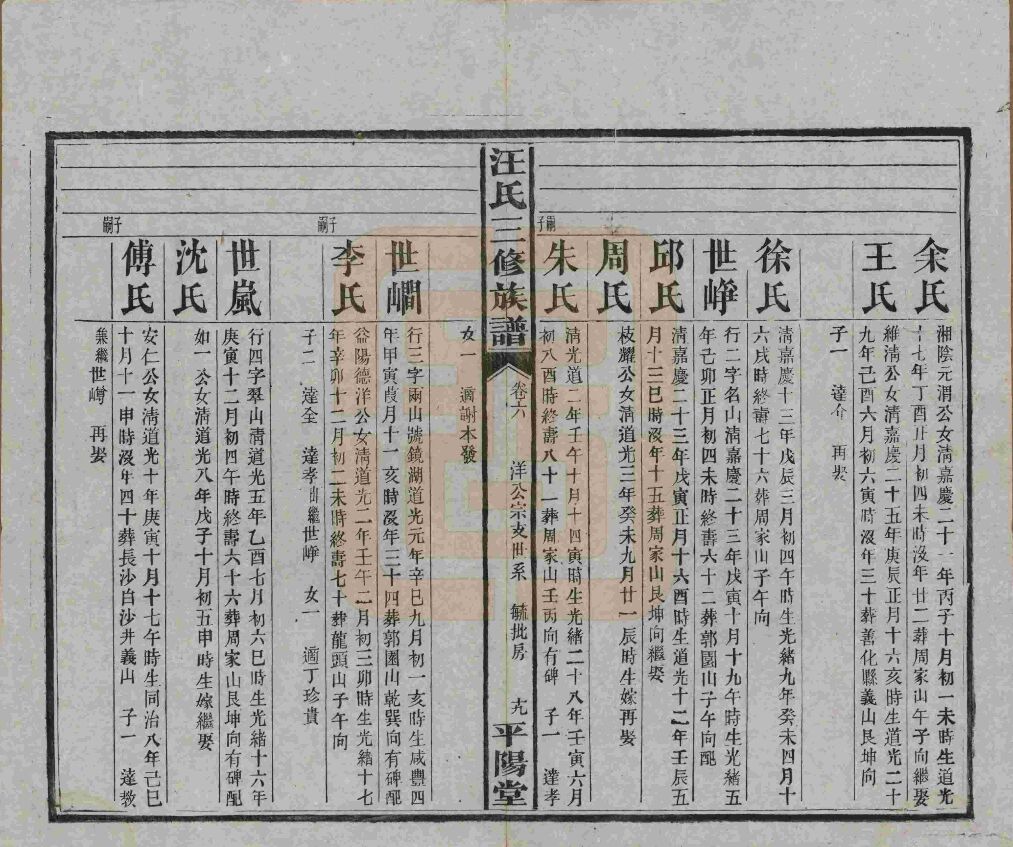 余氏
湘陰元渭公女淸嘉慶二十一年丙子十月初一未時生道光
十七年丁酉廿月初四未時沒年廿二葬周家山午子向繼娶
王氏
維淸公女淸嘉慶二十五年庚辰正月十六亥時生道光二十
九年己酉六月初六寅時沒年三十葬善化縣義山艮坤向
子一 達介 再娶
徐氏
淸嘉慶十三年戊辰三月初四午時生光緒九年癸未四月十
六戌時終壽七十六葬周家山子午向
世崢
行二字名山淸嘉慶二十三年戊寅十月十九午時生光緒五
年己卯正月初四未時終壽六十二葬郭園山子午向配
邱氏
淸嘉慶二十三年戊寅正月十六酉時生道光十二年壬辰五
月十三巳時沒年十五葬周家山艮坤向繼娶
周氏
枝耀公女淸道光三年癸未九月廿一辰時生嫁再娶
嗣子
朱氏
淸光道二年壬午十月十四寅時生光緒二十八年壬寅六月
初八酉時終壽八十一葬周家山壬丙向有碑 子一 達孝
汪氏三修族譜 卷六 洋公宗支世系 毓批房 十九 平陽堂
女一 適謝本發
世㟵
行三字兩山號鏡湖道光元年辛巳九月初一亥時生咸豐四
年甲寅葭月十一亥時沒年三十四葬郭園山乾巽向有碑配
嗣子
李氏
益陽德洋公女淸道光二年壬午二月初三卯時生光緒十七
年辛卯十二月初二未時終壽七十葬龍頭山子午向
子二 達全 達孝出繼世崢 女一 適丁珍貴
世嵐
行四字翠山淸道光五年乙酉七月初六巳時生光緒十六年
庚寅十二月初四午時終壽六十六葬周家山艮坤向有碑配
沈氏
如一公女淸道光八年戊子十月初五申時生嫁繼娶
嗣子
傅氏
安仁公女淸道光十年庚寅十月十七午時生同治八年己巳
十月十一申時沒年四十葬長沙白沙井義山 子一 達教
兼繼世㟳 再娶